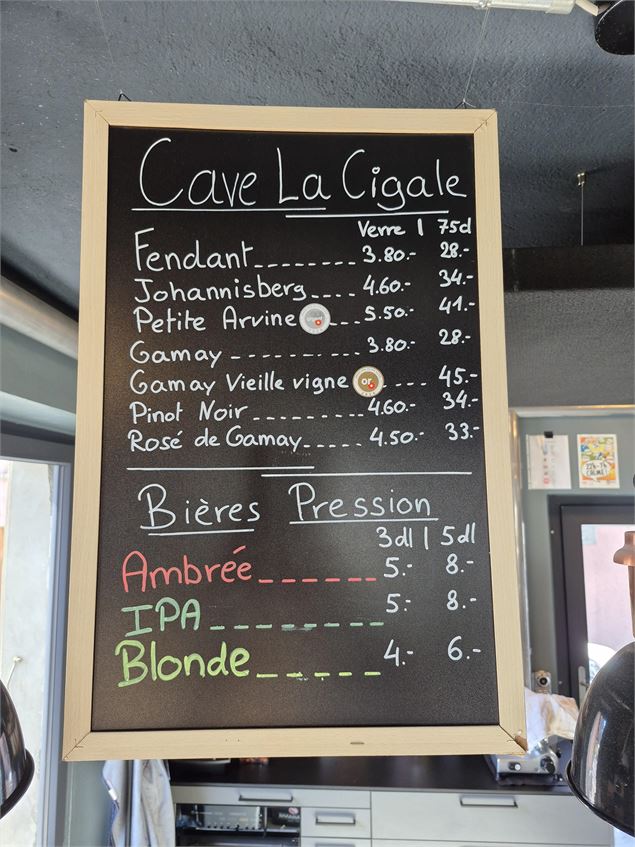 Cave La Cigale
Verre | 75cl
Fendant -------- 3.80.- 28.-
Johannisberg .... 4.60.- 34.-
Petite Arvine --- 5.50.- 41.-
Gamay --------- 3.80.- 28.-
Gamay Vieille vigne or .... 45.-
Pinot Noir --------- 4.60.- 34.-
Rosé de Gamay ----- 4.50.- 33.-
Bières Pression
3dl | 5dl
Ambrée ------ 5.- 8.-
IPA ------- 5.- 8.-
Blonde ----- 4.- 6.-